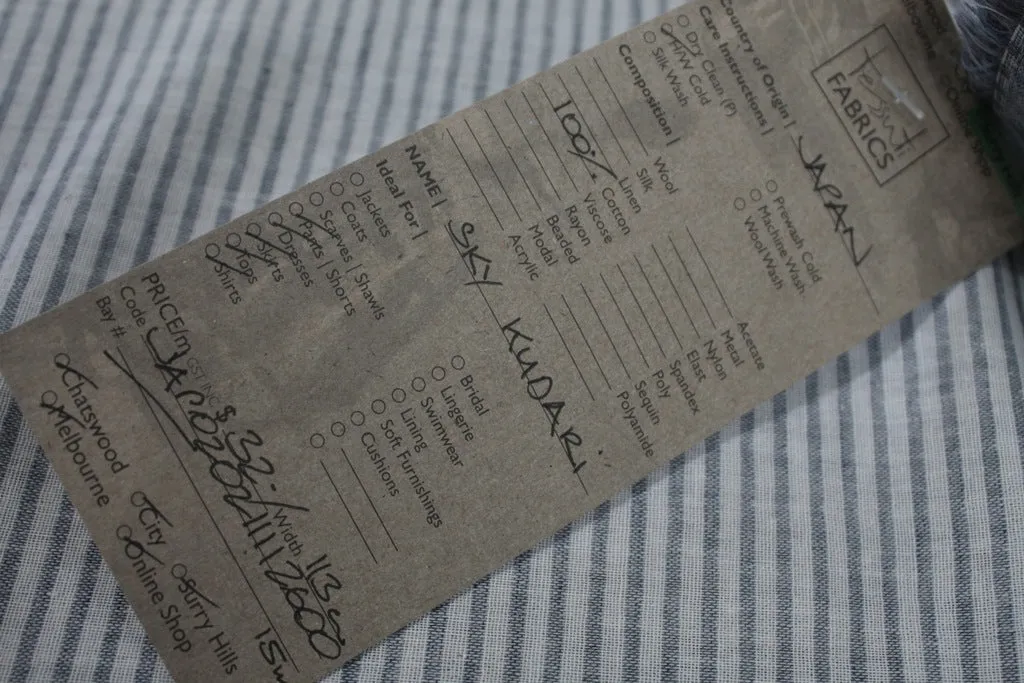 Tessuti
FABRICS
Country of Origin | JAPAN
Care Instructions |
Dry Clean (P)
H/W Cold
Silk Wash
Prewash Cold
Machine Wash
Wool Wash
Composition |
Wool
Silk
Linen
100% Cotton
Viscose
Rayon
Beaded
Modal
Acrylic
Acetate
Metal
Nylon
Elast
Spandex
Poly
Sequin
Polyamide
NAME | SKY KUDARI
Ideal For |
Jackets
Coats
Scarves | Shawls
Pants | Shorts
Dresses
Skirts
Tops
Shirts
Bridal
Lingerie
Swimwear
Lining
Soft Furnishings
Cushions
PRICE/m GST INC $32/ Width 113
Code
Bay #
Chatswood
Melbourne
City
Online Shop
Surry Hills